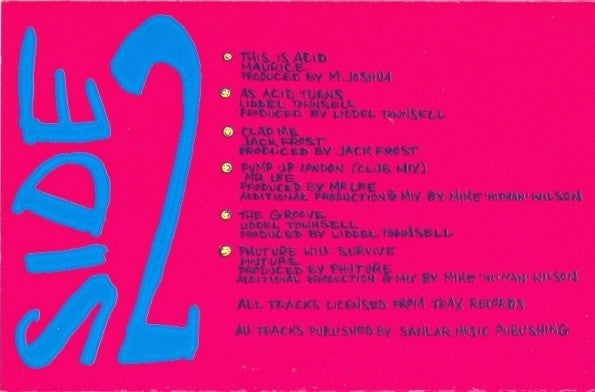 SIDE 2
THIS IS ACID
MAURICE
PRODUCED BY M. JOSHUA
AS ACID TURNS
LIDDEL TOWNSELL
PRODUCED BY LIDDEL TOWNSELL
CLAP ME
JACK FROST
PRODUCED BY JACK FROST
PUMP UP LONDON (CLUB MIX)
MR LEE
PRODUCED BY MR LEE
ADDITIONAL PRODUCTION & MIX BY MIKE 'HITMAN' WILSON
THE GROOVE
LIDDEL TOWNSELL
PRODUCED BY LIDDEL TOWNSELL
PHUTURE WILL SURVIVE
PHUTURE
PRODUCED BY PHUTURE
ADDITIONAL PRODUCTION & MIX BY MIKE 'HITMAN' WILSON
ALL TRACKS LICENSED FROM TRAX RECORDS
ALL TRACKS PUBLISHED BY SANLAR MUSIC PUBLISHING